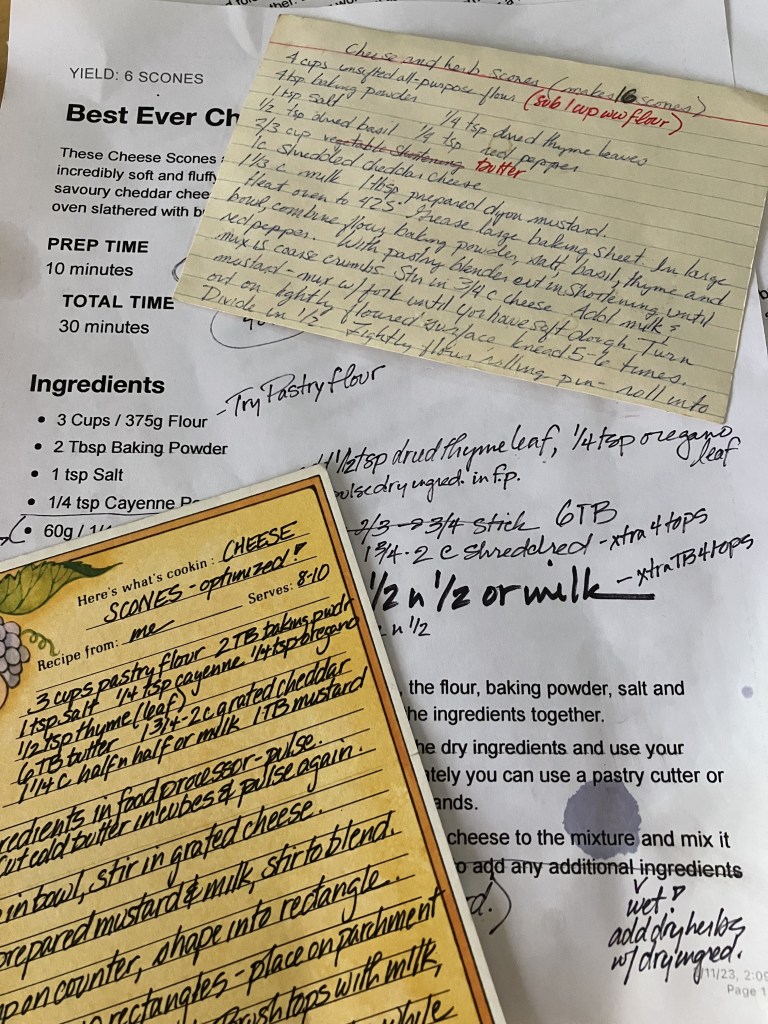 YIELD: 6 SCONES
Best Ever Ch
These Cheese Scones
incredibly soft and fluffy
savoury cheddar chee
oven slathered with b
PREP TIME
10 minutes
TOTAL TIME
30 minutes
Ingredients
3 Cups / 375g Flour
2 Tbsp Baking Powder
1 tsp Salt
1/4 tsp Cayenne Pe
60g / 1/4
-Try Pastry flour
Cheese and herb Scones (makes 16 scones)
4 cups unsifted all-purpose flour (sub 1 cup ww flour)
4 tsp baking powder 1/4 tsp dried thyme leaves
1 tsp salt
1/2 tsp dried basil 1/4 tsp red pepper
2/3 cup vegetable shortening butter
1c shredded cheddar cheese
1 1/3 c milk 1 tbsp prepared dijon mustard
Heat oven to 425. Grease large baking sheet. In large
bowl, combine flour, baking powder, salt, basil, thyme and
red pepper. With pastry blender cut in shortening until
mix is coarse crumbs. Stir in 3/4 c cheese. Add milk &
mustard - mix w/ fork until you have soft dough. Turn
out on lightly floured surface knead 5-6 times.
Divide in 1/2. Lightly flour rolling pin - roll into
1/2 tsp dried thyme leaf, 1/4 tsp oregano
leaf
pulse dry ingred. in f.p.
2/3 -> 3/4 stick 6TB
1 3/4 - 2 c shreddred - xtra 4 tops
1/2 n 1/2 or milk - xtra TB 4 tops
n 1/2
the flour, baking powder, salt and
he ingredients together.
he dry ingredients and use your
tely you can use a pastry cutter or
ands.
cheese to the mixture and mix it
o add any additional ingredients
rd.)
wet!
add dry herbs
w/ dry ingred.
/11/23, 2:09
Page 1
Here's what's cookin: CHEESE
SCONES - optimized!
Serves: 8-10
Recipe from: me
3 cups pastry flour 2 TB baking pwdr
1 tsp salt 1/4 tsp cayenne 1/4 tsp oregano
1/2 tsp thyme (leaf)
6 TB butter 1 3/4 - 2 c grated cheddar
1 1/4 c half n half or milk 1 TB mustard
redients in food processor - pulse.
Cut cold butter in cubes & pulse again.
in bowl, stir in grated cheese.
prepared mustard & milk, stir to blend.
pon counter, shape into rectangle.
rectangles - place on parchment
Brush tops with milk,
while